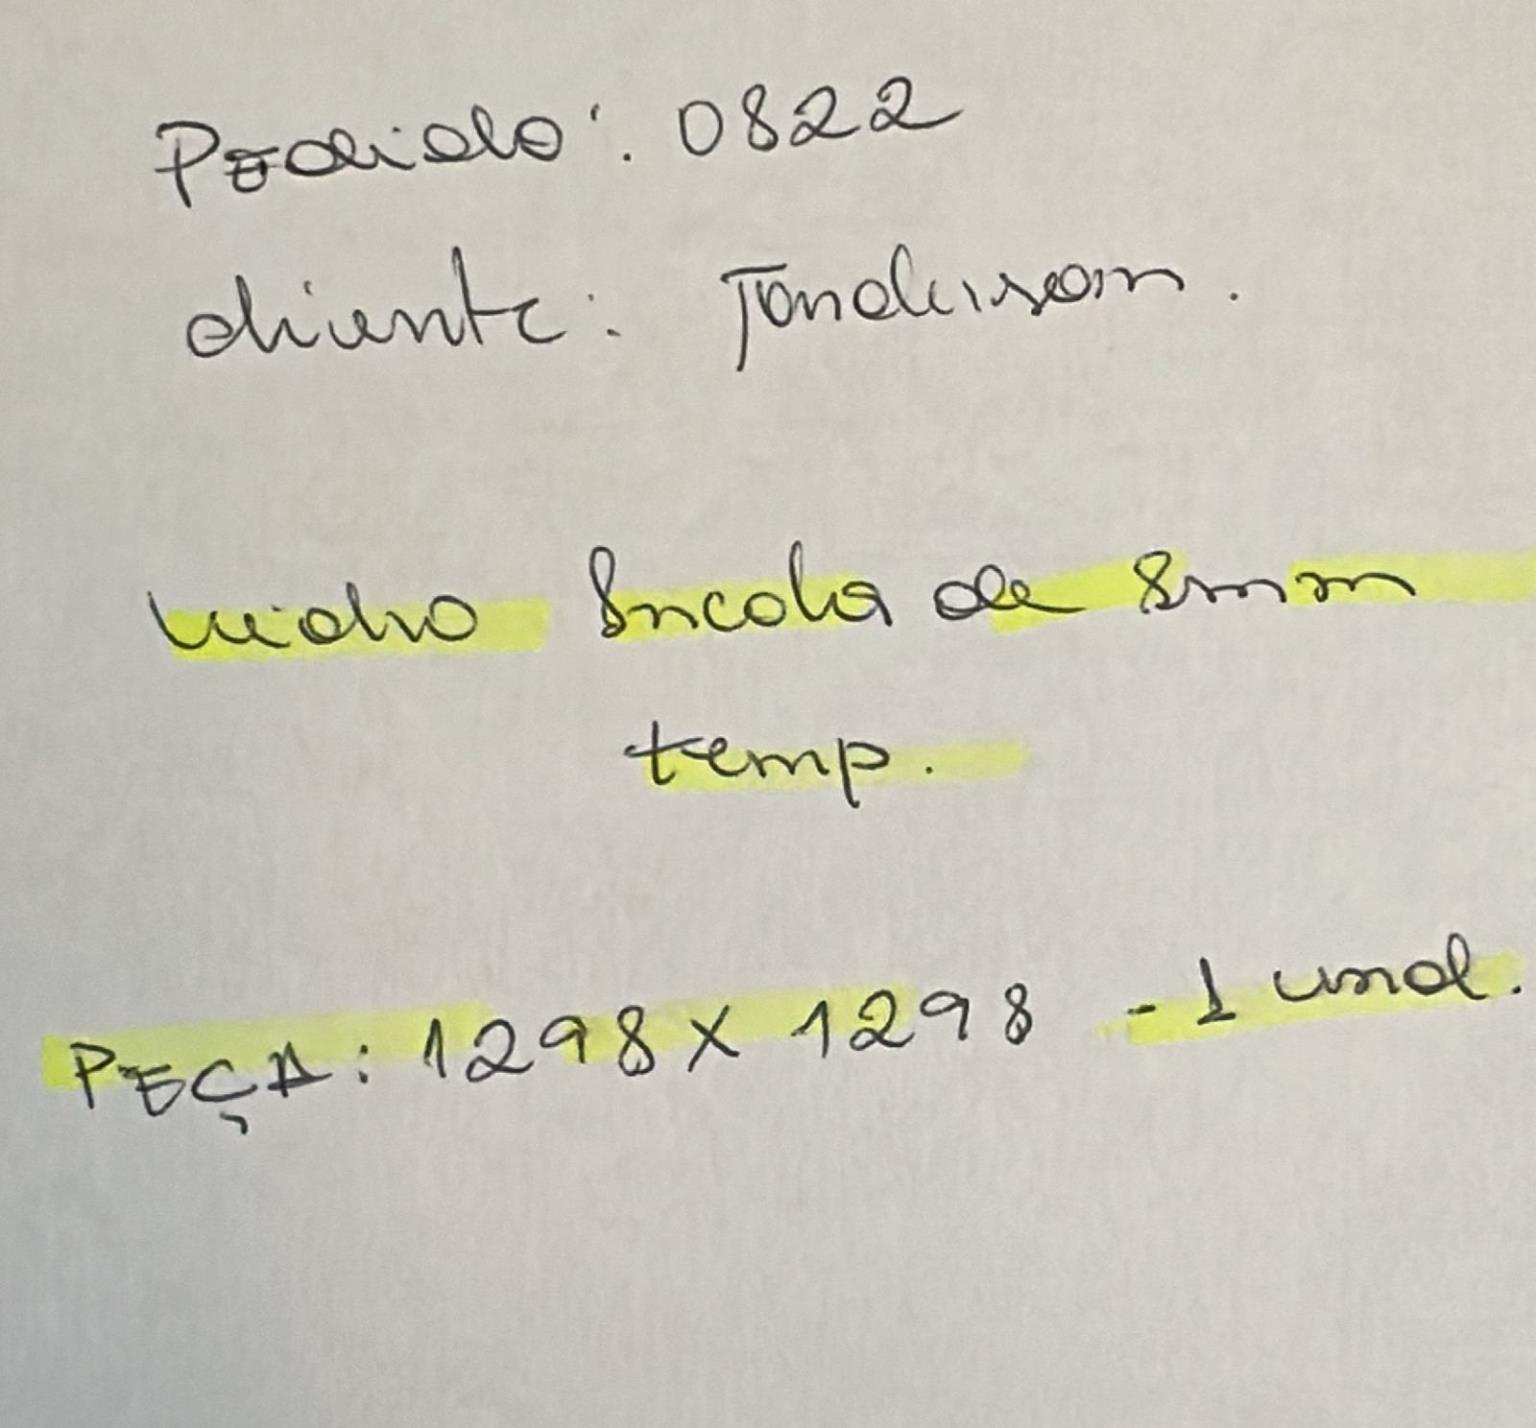 Pedido: 0822
cliente: Janderson.
vidro Incolor de 8mm
temp.
PEÇA: 1298 X 1298 - 1 und.